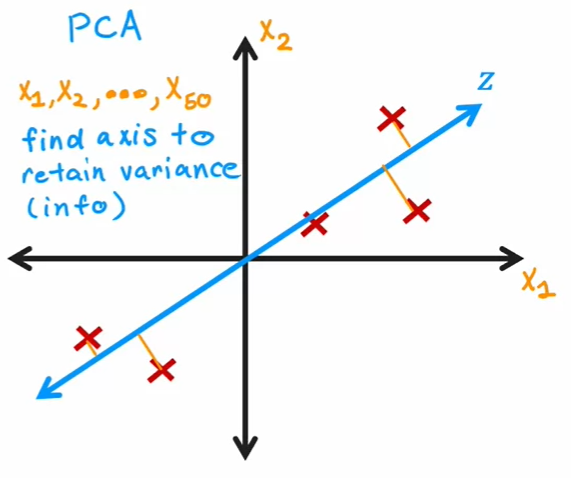 PCA
X₂
X₁, X₂, •••, X₅₀
find axis to
retain variance
(info)
Z
X₁